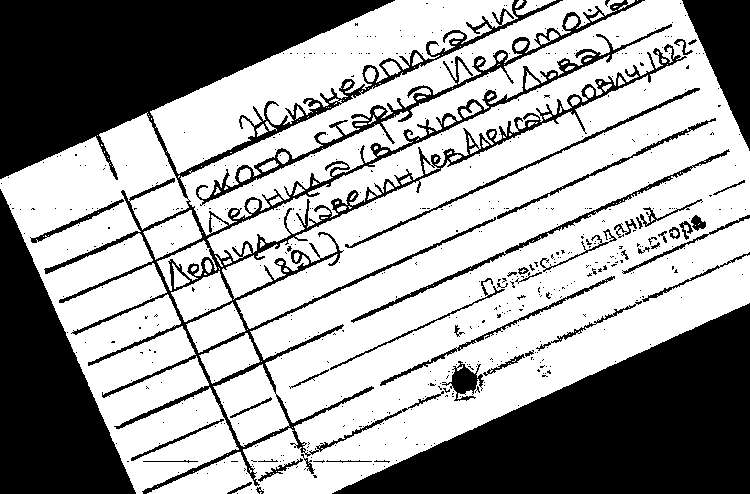 Жизнеописание
ского старца Иеромона
Леонида (в схиме Льва)
Леонид (Кавелин, Лев Александрович; 1822-
1891).
Перечень изданий
автора